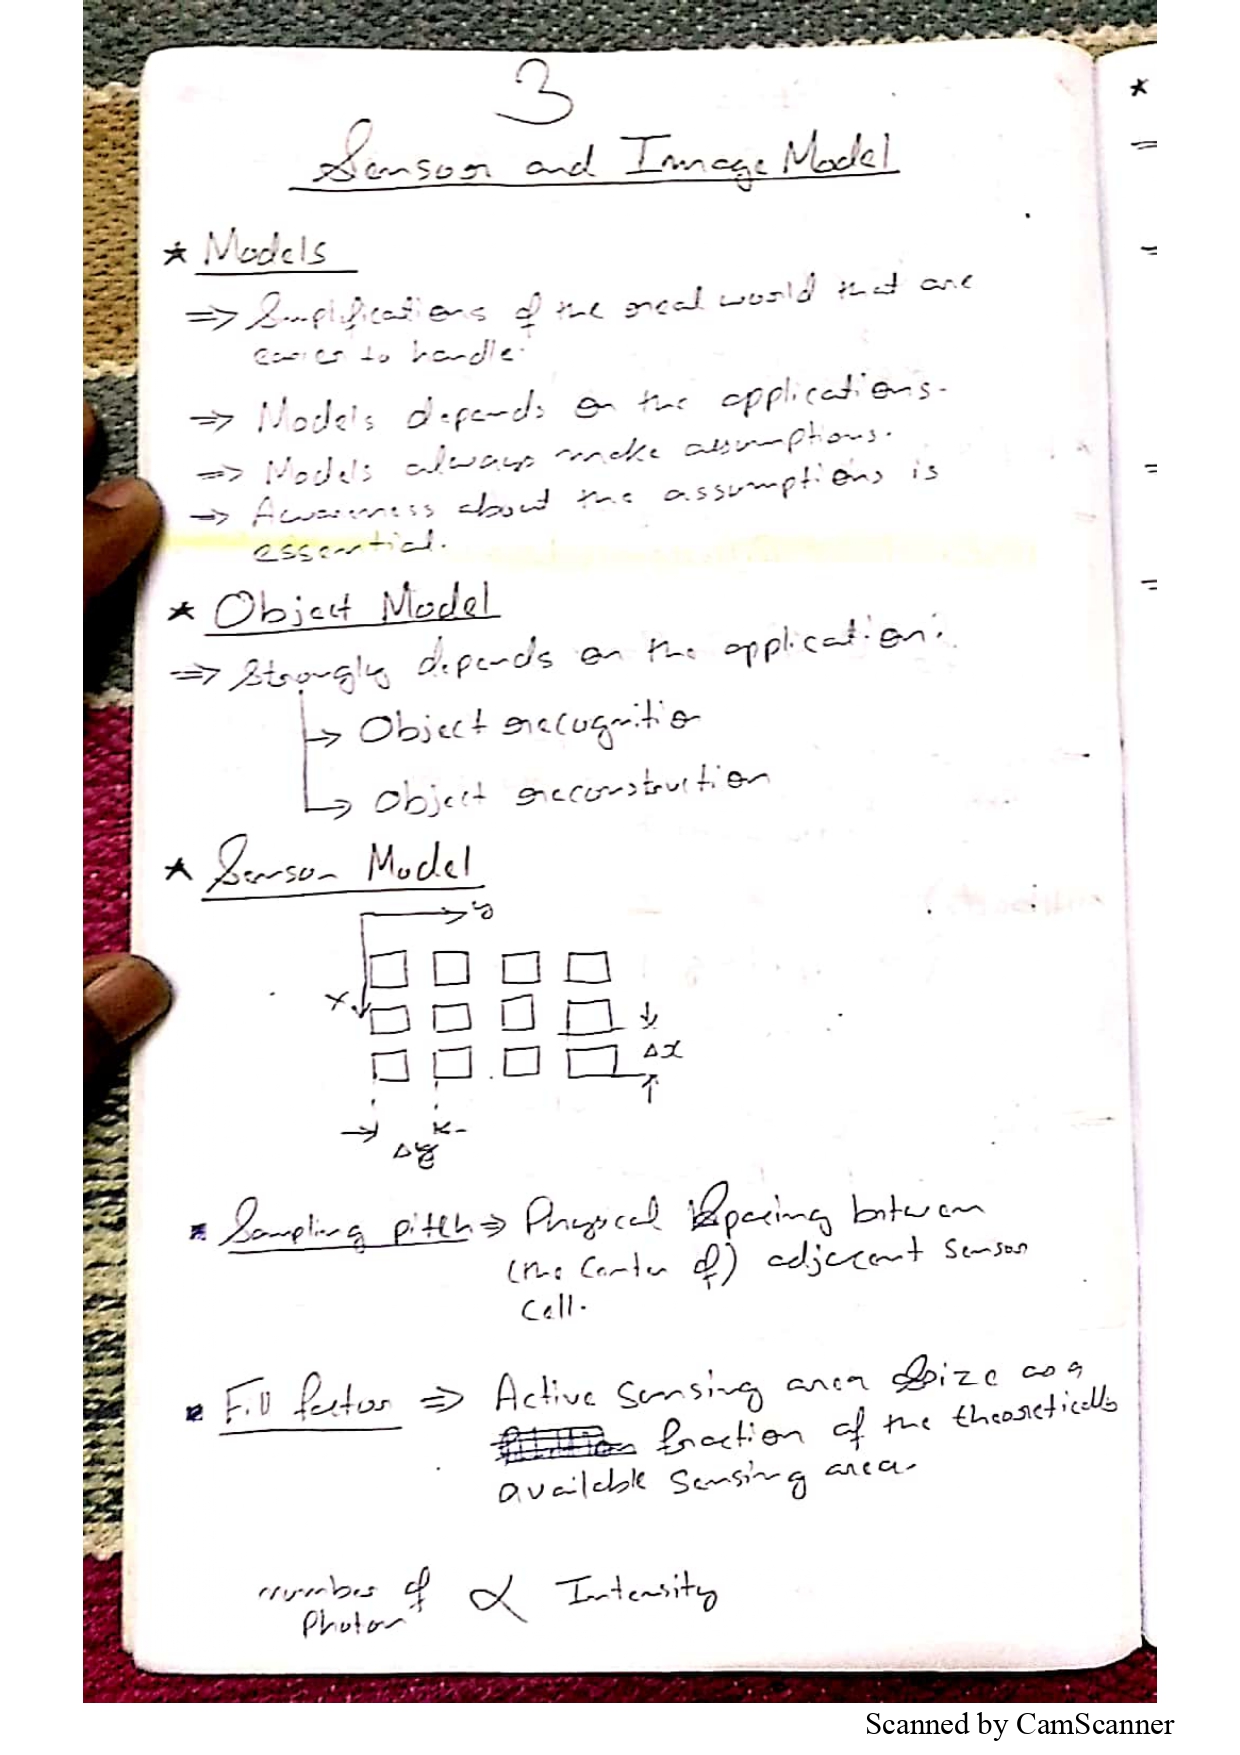 3
Sensor and Image Model
* Models
⇒ Simplifications of the real world that are
easier to handle.
⇒ Models depends on the applications.
⇒ Models always make assumptions.
⇒ Awareness about the assumptions is
essential.
* Object Model
⇒ Strongly depends on the application:
→ Object recognition
→ Object reconstruction
* Sensor Model
y
x
Δx
Δy
Sampling pitch ⇒ Physical spacing between
(the center of) adjacent sensor
cell.
Fill factor ⇒ Active sensing area size as a
fraction of the theoretically
available sensing area.
number of ∝ Intensity
Photon
Scanned by CamScanner